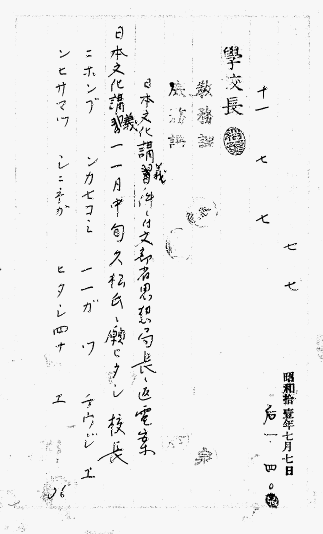 昭和拾壹年七月七日
后一、四〇
十一 七 七 七 七
學校長
教務課
庶務課
日本文化講義ノ件ニ付文部省思想局長ニ返電案
日本文化講義一一月中旬久松氏ニ願ヒタシ 校長
ニホンブ ンカセコミ 一一ガ ツ チウジ ユ
ンヒサマツ シニネガ ヒタシ四サ エ